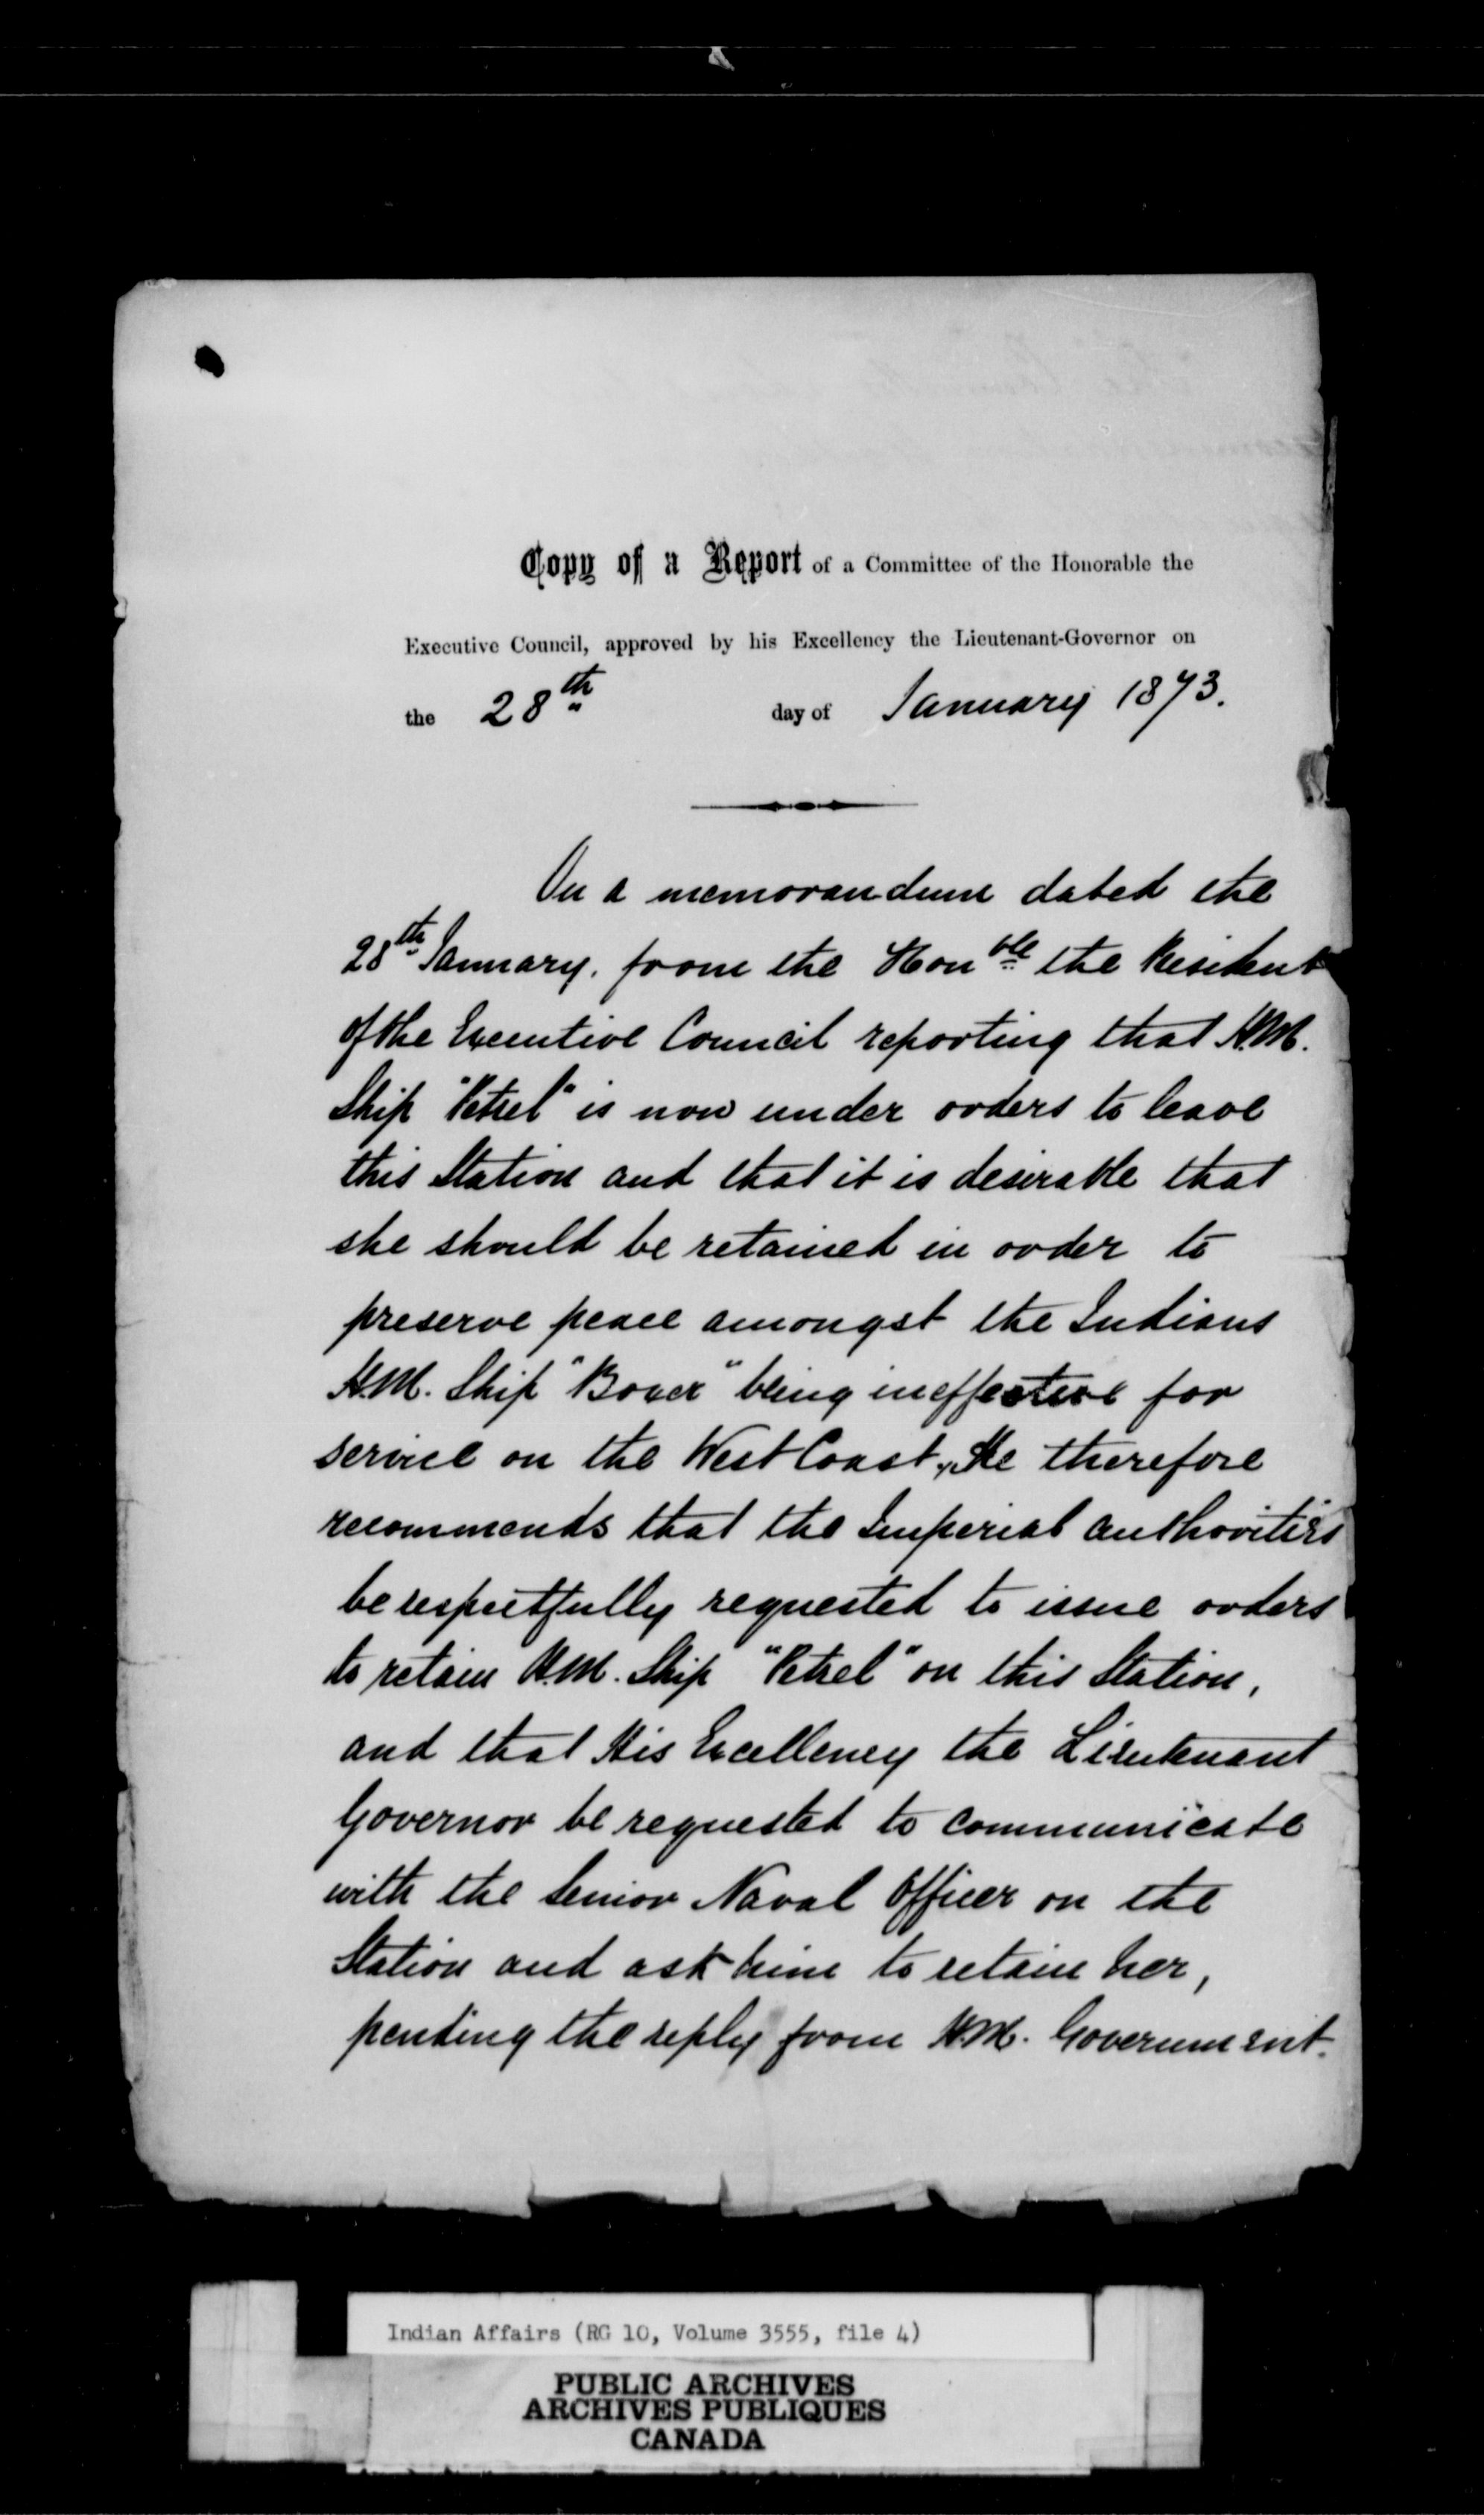 Copy of a Report of a Committee of the Honorable the
Executive Council, approved by his Excellency the Lieutenant-Governor on
the 28th day of January 1873.
On a memorandum dated the
28th January. from the Honble the President
of the Executive Council reporting that H.M.
Ship "Petrel" is now under orders to leave
this Station and that it is desirable that
she should be retained in order to
preserve peace amongst the Indians
H.M. Ship "Boxer" being ineffective for
service on the West Coast, He therefore
recommends that the Imperial authorities
be respectfully requested to issue orders
to retain H.M. Ship "Petrel" on this Station,
and that His Excellency the Lieutenant
Governor be requested to communicate
with the Senior Naval Officer on the
Station and ask him to retain her,
pending the reply from H.M. Government.
Indian Affairs (RG 10, Volume 3555, file 4)
PUBLIC ARCHIVES
ARCHIVES PUBLIQUES
CANADA